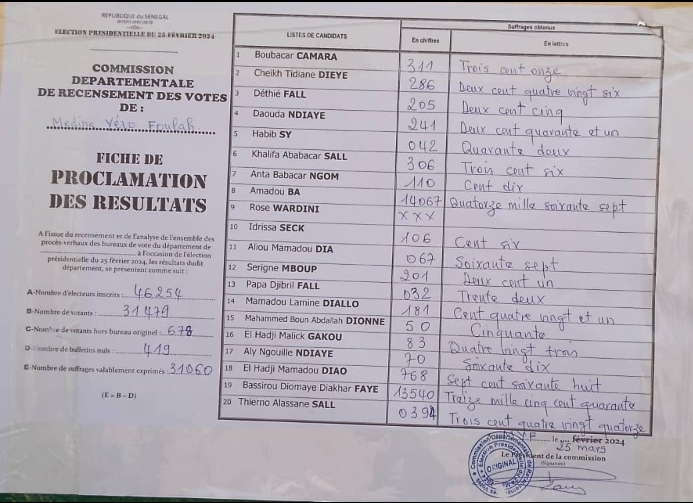 REPUBLIQUE du SENEGAL
ELECTION PRESIDENTIELLE DU 25 FÉVRIER 2024
COMMISSION
DEPARTEMENTALE
DE RECENSEMENT DES VOTES
DE :
Medina Yéro Foulah
FICHE DE
PROCLAMATION
DES RESULTATS
A l'issue du recensement et de l'analyse de l'ensemble des
procès-verbaux des bureaux de vote du département de
à l'occasion de l'élection
présidentielle du 25 février 2024, les résultats dudit
département, se présentent comme suit :
A-Nombre d'électeurs inscrits : 46254
B-Nombre de votants : 31479
C-Nombre de votants hors bureau originel : 678
D-Nombre de bulletins nuls : 419
E-Nombre de suffrages valablement exprimés : 31060
(E = B - D)
LISTES DE CANDIDATS Suffrages obtenus
En chiffres En lettres
1 Boubacar CAMARA 311 Trois cent onze
2 Cheikh Tidiane DIEYE 286 Deux cent quatre vingt six
3 Déthié FALL 205 Deux cent cinq
4 Daouda NDIAYE 241 Deux cent quarante et un
5 Habib SY 042 Quarante deux
6 Khalifa Ababacar SALL 306 Trois cent six
7 Anta Babacar NGOM 110 Cent dix
8 Amadou BA 14067 Quatorze mille soixante sept
9 Rose WARDINI XXX
10 Idrissa SECK 106 Cent six
11 Aliou Mamadou DIA 067 Soixante sept
12 Serigne MBOUP 201 Deux cent un
13 Papa Djibril FALL 032 Trente deux
14 Mamadou Lamine DIALLO 181 Cent quatre vingt et un
15 Mahammed Boun Abdallah DIONNE 50 Cinquante
16 El Hadji Malick GAKOU 83 Quatre vingt trois
17 Aly Ngouille NDIAYE 70 Soixante dix
18 El Hadji Mamadou DIAO 768 Sept cent soixante huit
19 Bassirou Diomaye Diakhar FAYE 13540 Treize mille cinq cent quarante
20 Thierno Alassane SALL 0394 Trois cent quatre vingt quatorze
MYF le février 2024
25 mars
Le Président de la commission
(Signature)
ORIGINAL